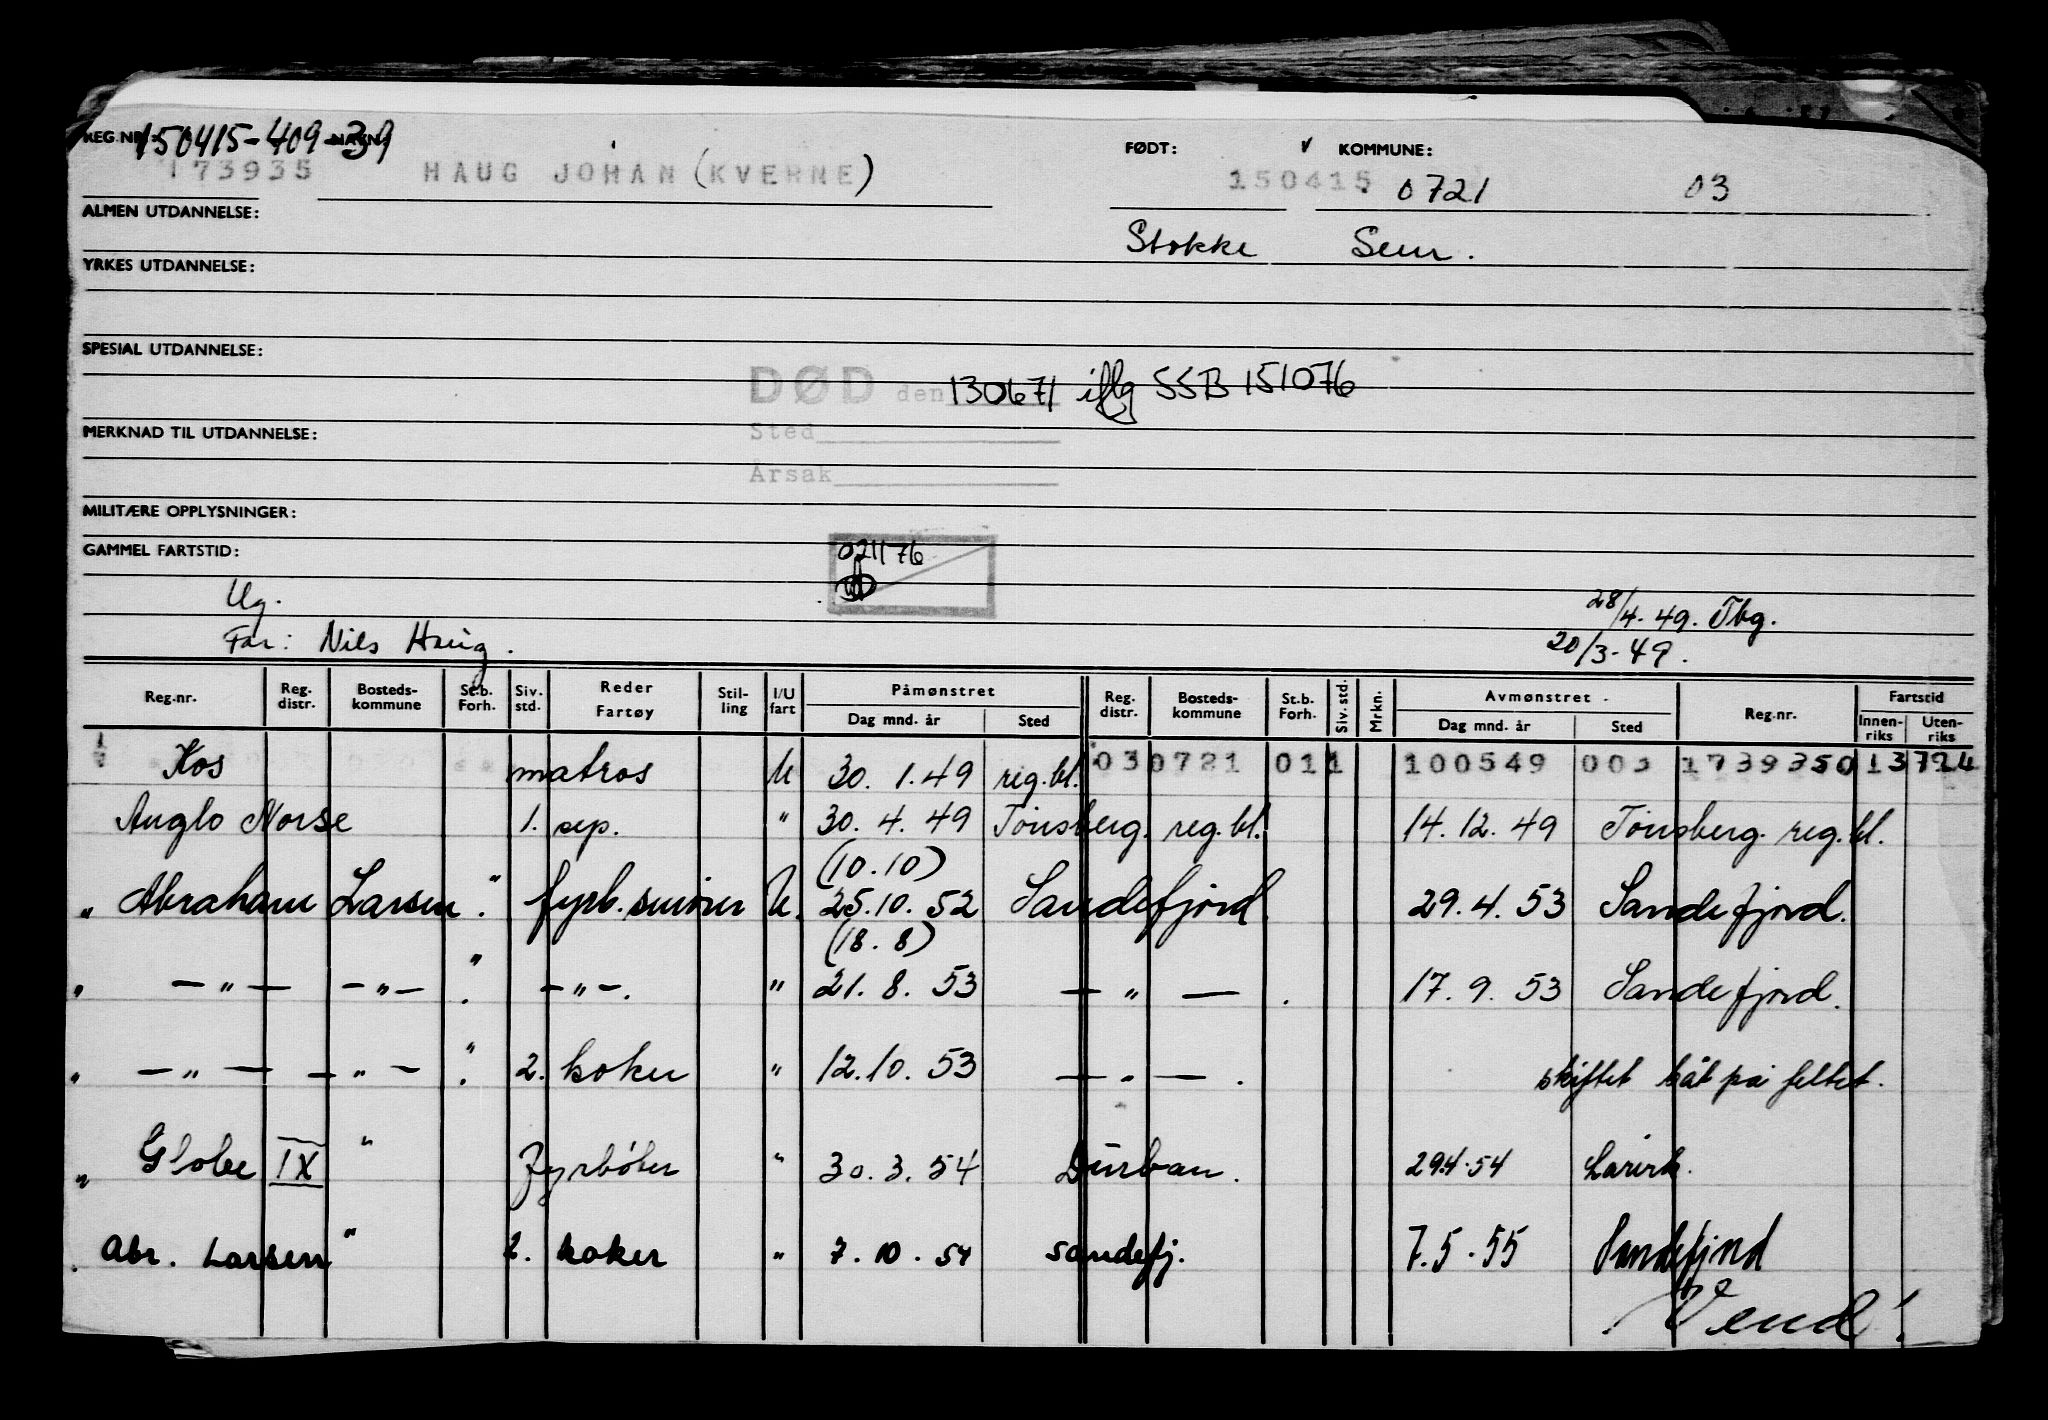 REG.NR.: 150415-409-39 NAVN:
173935 HAUG JOHAN (KVERNE)
FØDT: v KOMMUNE:
150415 0721 03
ALMEN UTDANNELSE:
Stokke Sem.
YRKES UTDANNELSE:
SPESIAL UTDANNELSE:
DØD den 130671 iflg SSB 151076
MERKNAD TIL UTDANNELSE:
Sted
Årsak
MILITÆRE OPPLYSNINGER:
GAMMEL FARTSTID:
021176
Ug.
28/4-49. Tbg.
Far: Nils Haug.
20/3-49.
Reg.nr. Reg. distr. Bosteds-kommune St.b. Forh. Siv. std. Reder Fartøy Stil-ling I/U fart Påmønstret Dag mnd. år Sted Reg. distr. Bosteds-kommune St.b. Forh. Siv. std. Mrkn. Avmønstret Dag mnd. år Sted Reg.nr. Fartstid Innen-riks Uten-riks
Kos matros U 30. 1. 49 reg.bl. 03 0721 01 1 100549 003 1739350 13
Anglo Norse 1. sep. " 30. 4. 49 Tönsberg. reg.bl. 14. 12. 49 Tönsberg. reg.bl.
(10.10)
" Abraham Larsen ". fyrb. smörer U. 25.10. 52 Sandefjord. 29. 4. 53 Sandefjord.
(18. 8)
" — " — — " — ". — " —. " 21. 8. 53 — " — . 17. 9. 53 Sandefjord.
" — " — — " — ". 2. koker " 12.10. 53 — " — . skiftet båt på feltet.
" Globe IX " Fyrböter " 30. 3. 54 Durban. 29.4.54 Larvik.
" Abr. Larsen " 2. koker " 7. 10. 54 Sandefj. 7.5.55 Sandefjord
Vend!